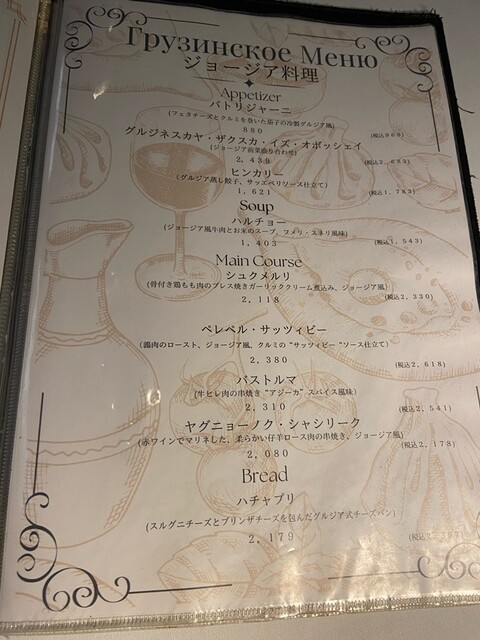 Грузинское Меню
ジョージア料理
Appetizer
パトリジャーニ
(フェタチーズとクルミを巻いた茄子の冷製グルジア風)
880 (税込968)
グルジネスカヤ・ザクスカ・イズ・オボッシェイ
(ジョージア前菜盛り合わせ)
2,439 (税込2,683)
ヒンカリー
(グルジア蒸し餃子、サッエペリソース仕立て)
1,621 (税込1,783)
Soup
ハルチョー
(ジョージア風牛肉とお米のスープ、フメリ・スネリ風味)
1,403 (税込1,543)
Main Course
シュクメルリ
(骨付き鶏もも肉のプレス焼きガーリッククリーム煮込み、ジョージア風)
2,118 (税込2,330)
ペレペル・サッツィビー
(鶉肉のロースト、ジョージア風、クルミの"サッツィビー"ソース仕立て)
2,380 (税込2,618)
バストルマ
(牛ヒレ肉の串焼き"アジーカ"スパイス風味)
2,310 (税込2,541)
ヤグニョーノク・シャシリーク
(赤ワインでマリネした、柔らかい仔羊ロース肉の串焼き、ジョージア風)
2,080 (税込2,178)
Bread
ハチャプリ
(スルグニチーズとブリンザチーズを包んだグルジア式チーズパン)
2,179